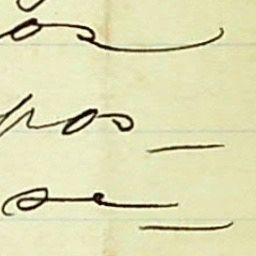 os
pos_
se_